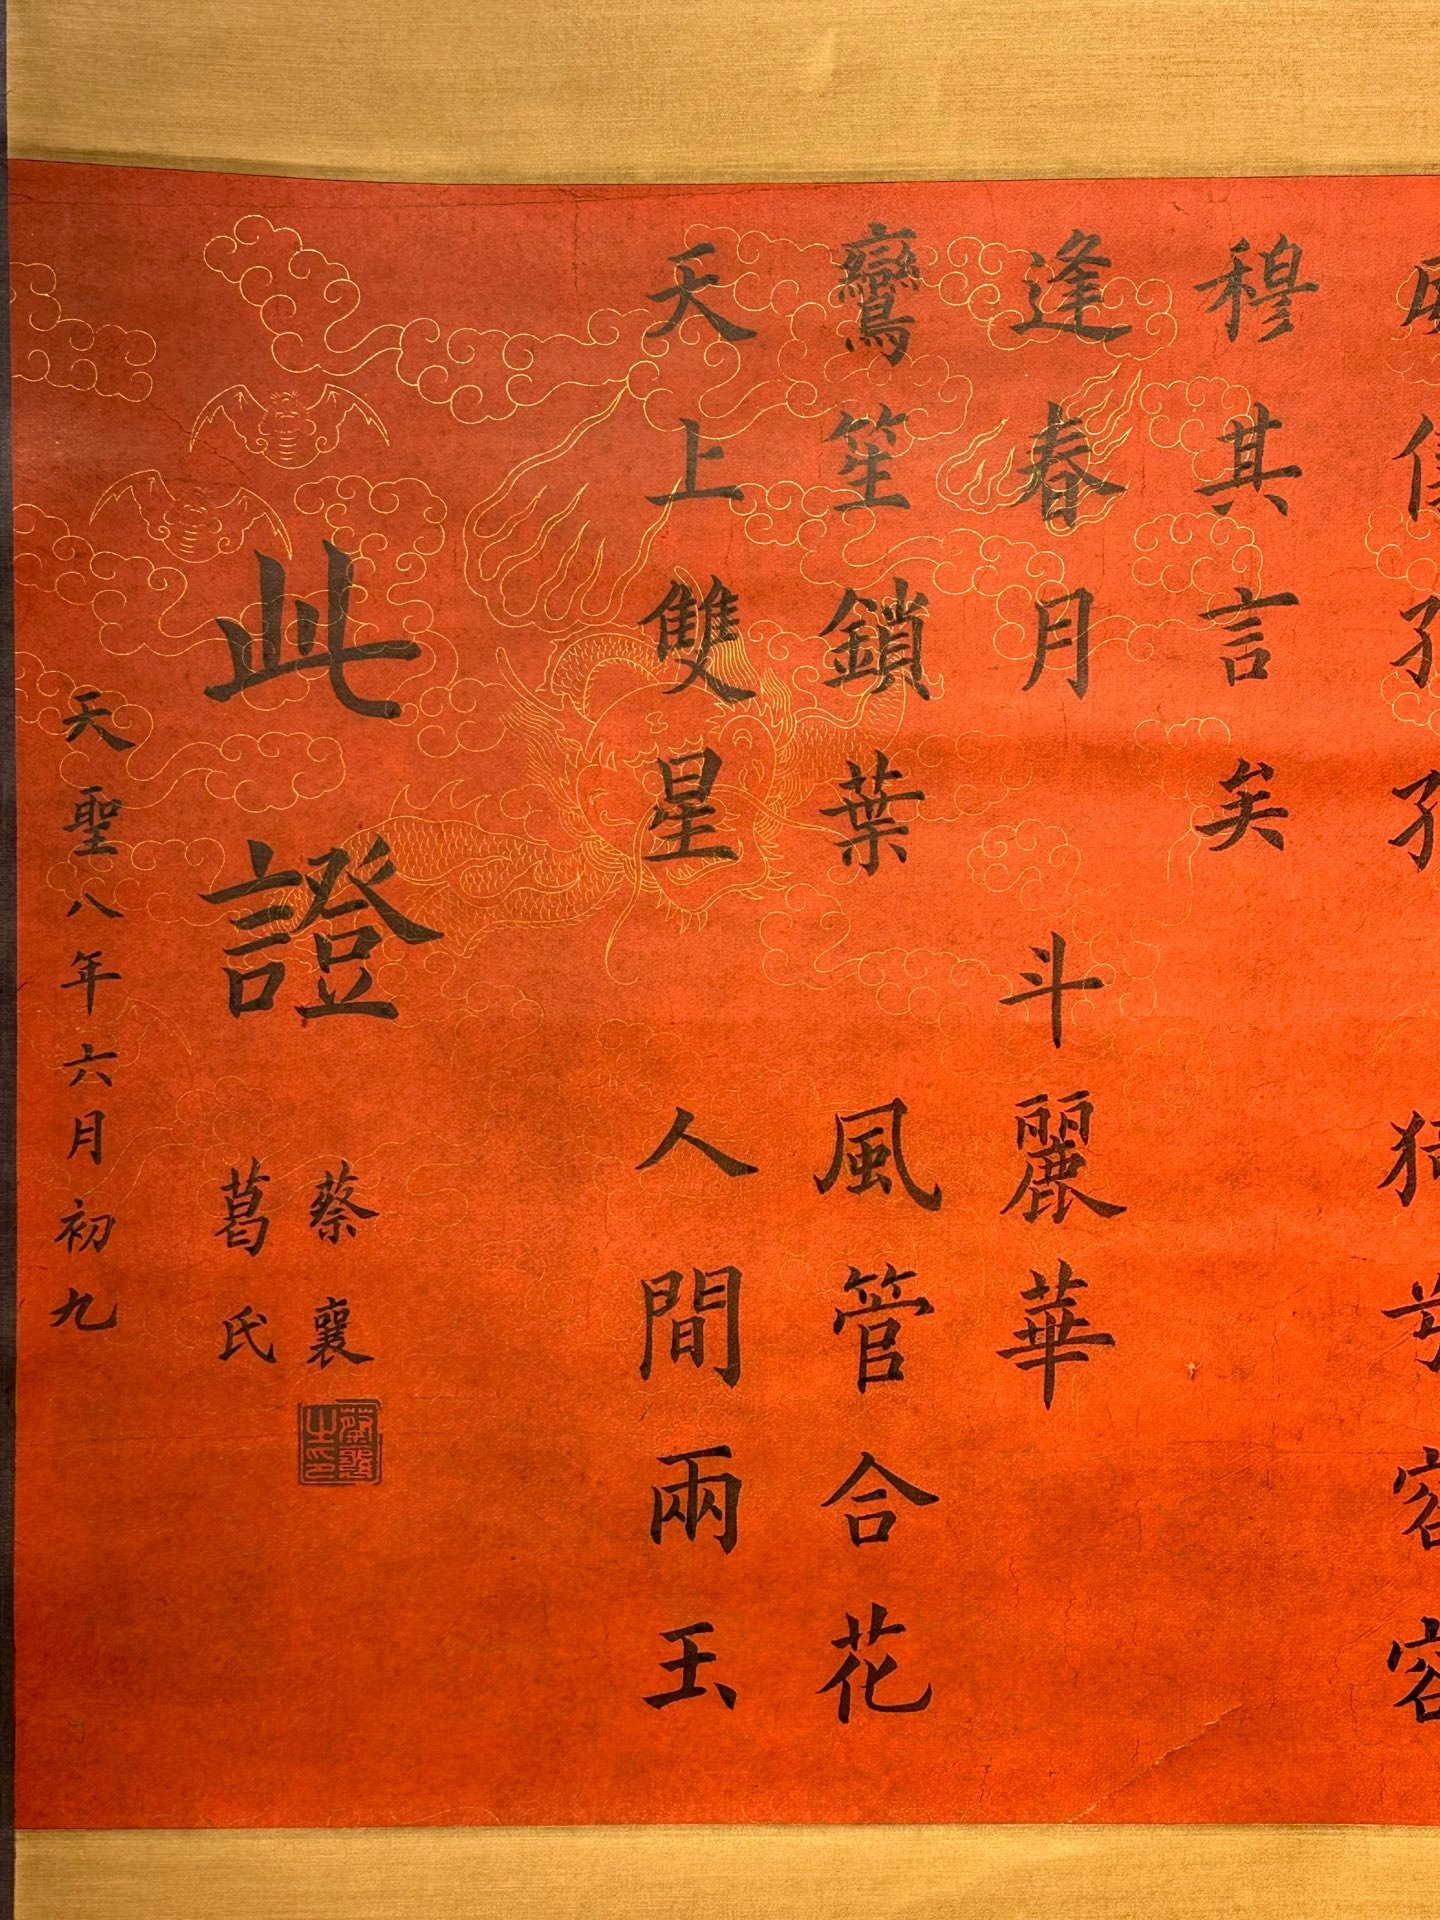 穆其言矣
逢春月 斗麗華
鸞笙鎖葉 風管合花
天上雙星 人間兩玉
此證
蔡襄
葛氏
天聖八年六月初九
蔡襄之印